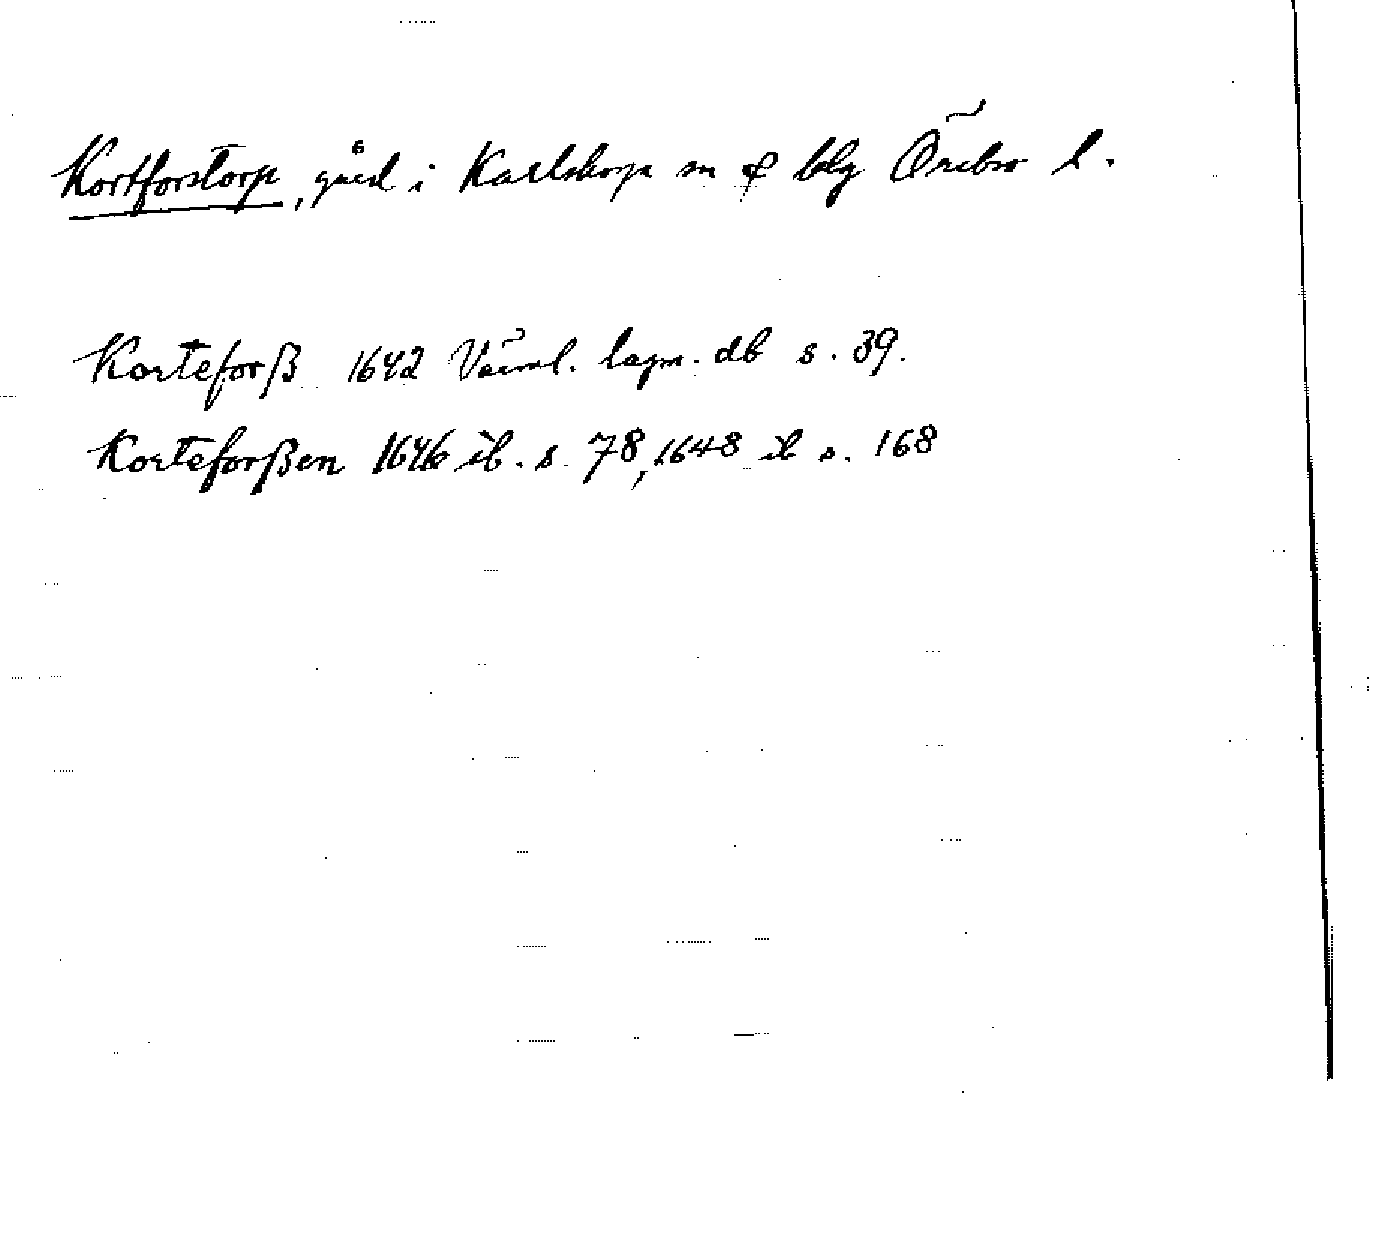 Kortforstorp, gård i Karlskoga sn & blg Örebro l.
Korteforß 1642 Värml. lagm. db s. 39.
Korteforßen 1646 ib. s. 78, 1648 ib s. 168